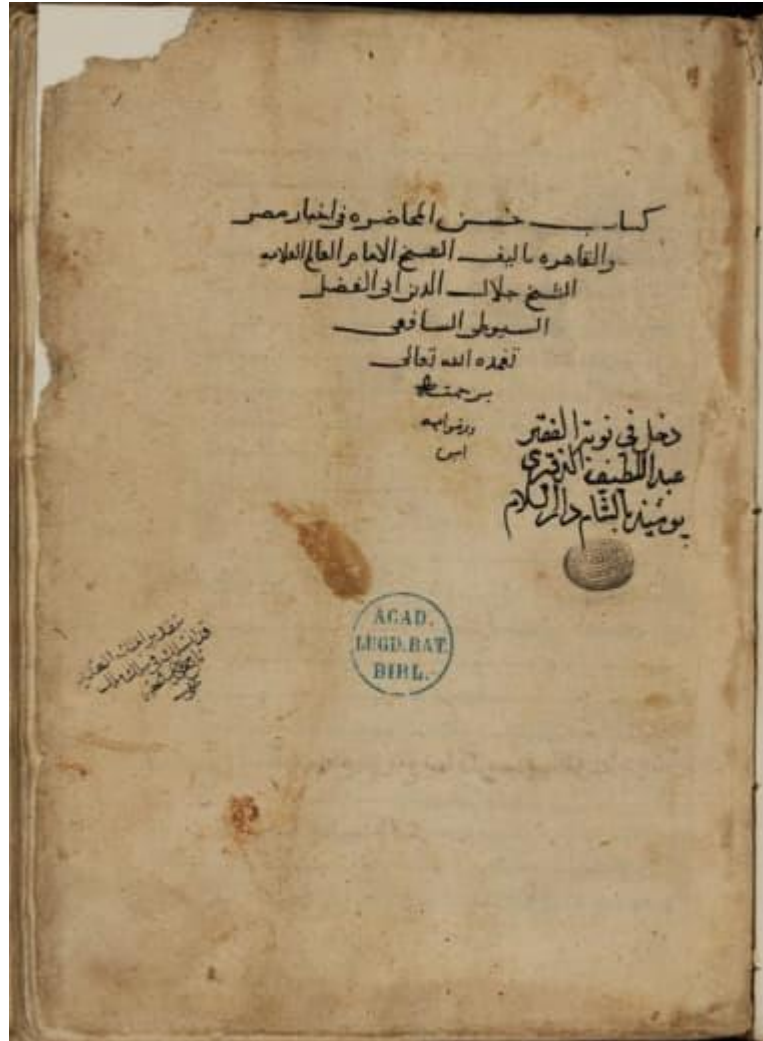 كتاب حسن المحاضره في اخبار مصر
والقاهره تاليف الشيخ الامام العالم العلامه
الشيخ جلال الدين ابي الفضل
السيوطي الشافعي
تغمده الله تعالى
برحمته
ورضوانه
امين
دخل في نوبة الفقير
عبد اللطيف
يومئذ بالشام دار السلام
ACAD.
LUGD.BAT.
BIBL.